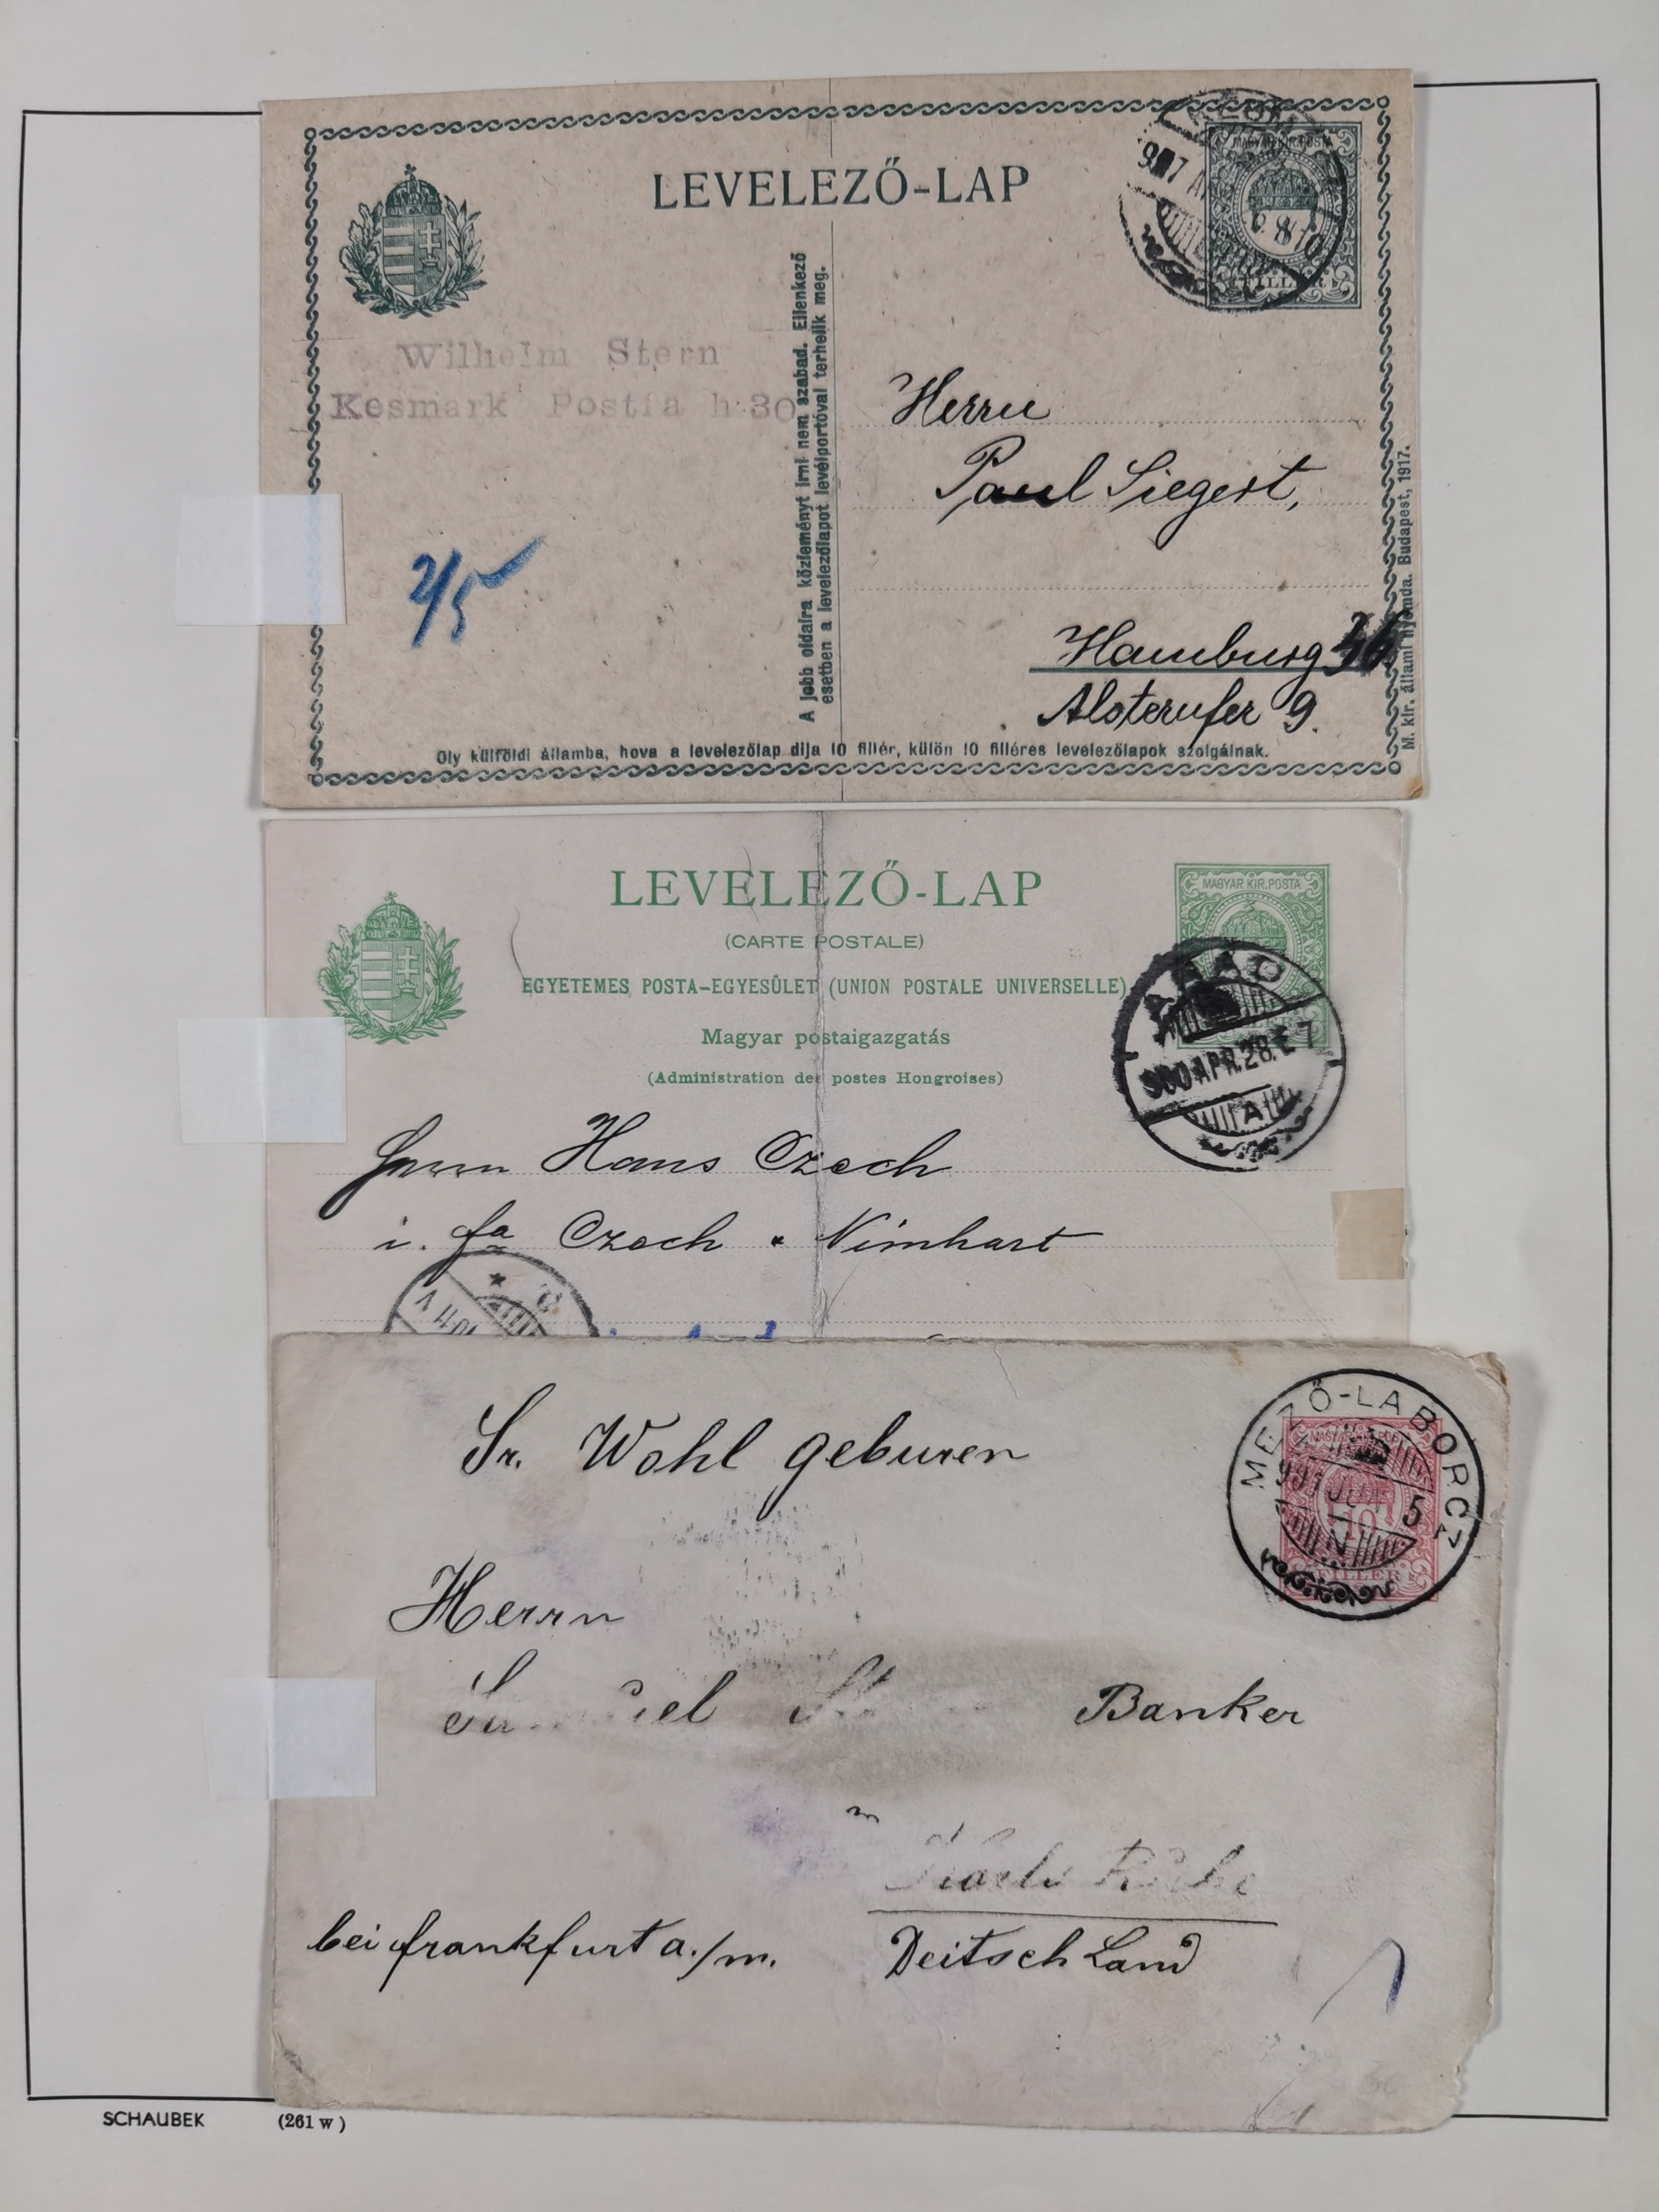 LEVELEZŐ-LAP
MAGYAR KIR. POSTA
8
FILLÉR
Wilhelm Stern
Kesmark Postfa h 30
A jobb oldalra közleményt irni nem szabad. Ellenkező
esetben a levelezőlapot levélportóval terhelik meg.
Herrn
Paul Siegert,
2/5
Hamburg 36
Alsterufer 9.
M. kir. állami nyomda. Budapest, 1917.
Oly külföldi államba, hova a levelezőlap dija 10 fillér, külön 10 filléres levelezőlapok szolgálnak.
LEVELEZŐ-LAP
MAGYAR KIR. POSTA
(CARTE POSTALE)
EGYETEMES POSTA-EGYESÜLET (UNION POSTALE UNIVERSELLE)
Magyar postaigazgatás
(Administration des postes Hongroises)
900 APR. 28. E 7
A
Herrn Hans Czech
i. fa Czech & Nimhart
MEZŐ-LABORCZ
5
N
10
FILLÉR
Sr. Wohl geburen
Herrn
Banker
bei frankfurt a./m.
Deitsch Land
SCHAUBEK (261 w)